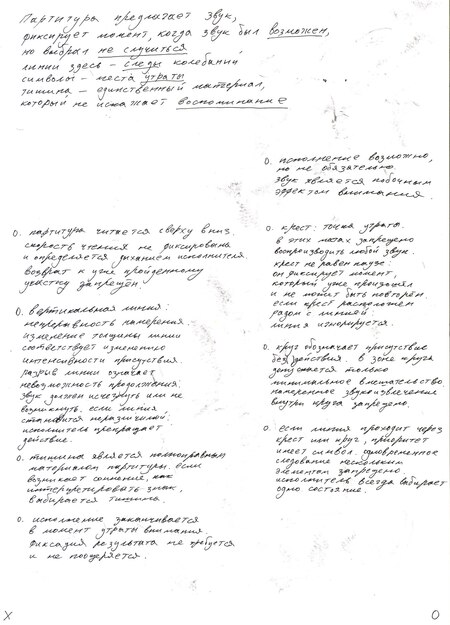 Партитура предлагает звук,
фиксирует момент, когда звук был возможен,
но выбрал не случиться
линии здесь – следы колебаний
символы – места утраты
тишина – единственный материал,
который не искажает воспоминание
0. исполнение возможно,
но не обязательно.
звук является побочным
эффектом внимания.
0. партитура читается сверху вниз.
скорость чтения не фиксирована
и определяется дыханием исполнителя
возврат к уже пройденному
участку запрещён.
0. вертикальная линия:
непрерывность намерения.
изменение толщины линии
соответствует изменению
интенсивности присутствия.
разрыв линии означает
невозможность продолжения.
звук должен исчезнуть или не
возникнуть. если линия
становится неразличимой:
исполнитель прекращает
действие.
0. тишина является полноправным
материалом партитуры. если
возникает сомнение, как
интерпретировать знак,
выбирается тишина.
0. исполнение заканчивается
в момент утраты внимания.
фиксация результата не требуется
и не поощряется.
0. крест: точка утраты.
в этих местах запрещено
воспроизводить любой звук.
крест не равен паузе.
он фиксирует момент,
который уже произошёл
и не может быть повторён.
если крест расположен
рядом с линией
линия игнорируется.
0. круг обозначает присутствие
без действия. в зоне круга
допускается только
минимальное вмешательство
намеренное звукоизвлечение
внутри круга запрещено.
0. если линия проходит через
крест или круг, приоритет
имеет символ. одновременное
следование нескольким
элементам запрещено.
исполнитель всегда выбирает
одно состояние.
X
0